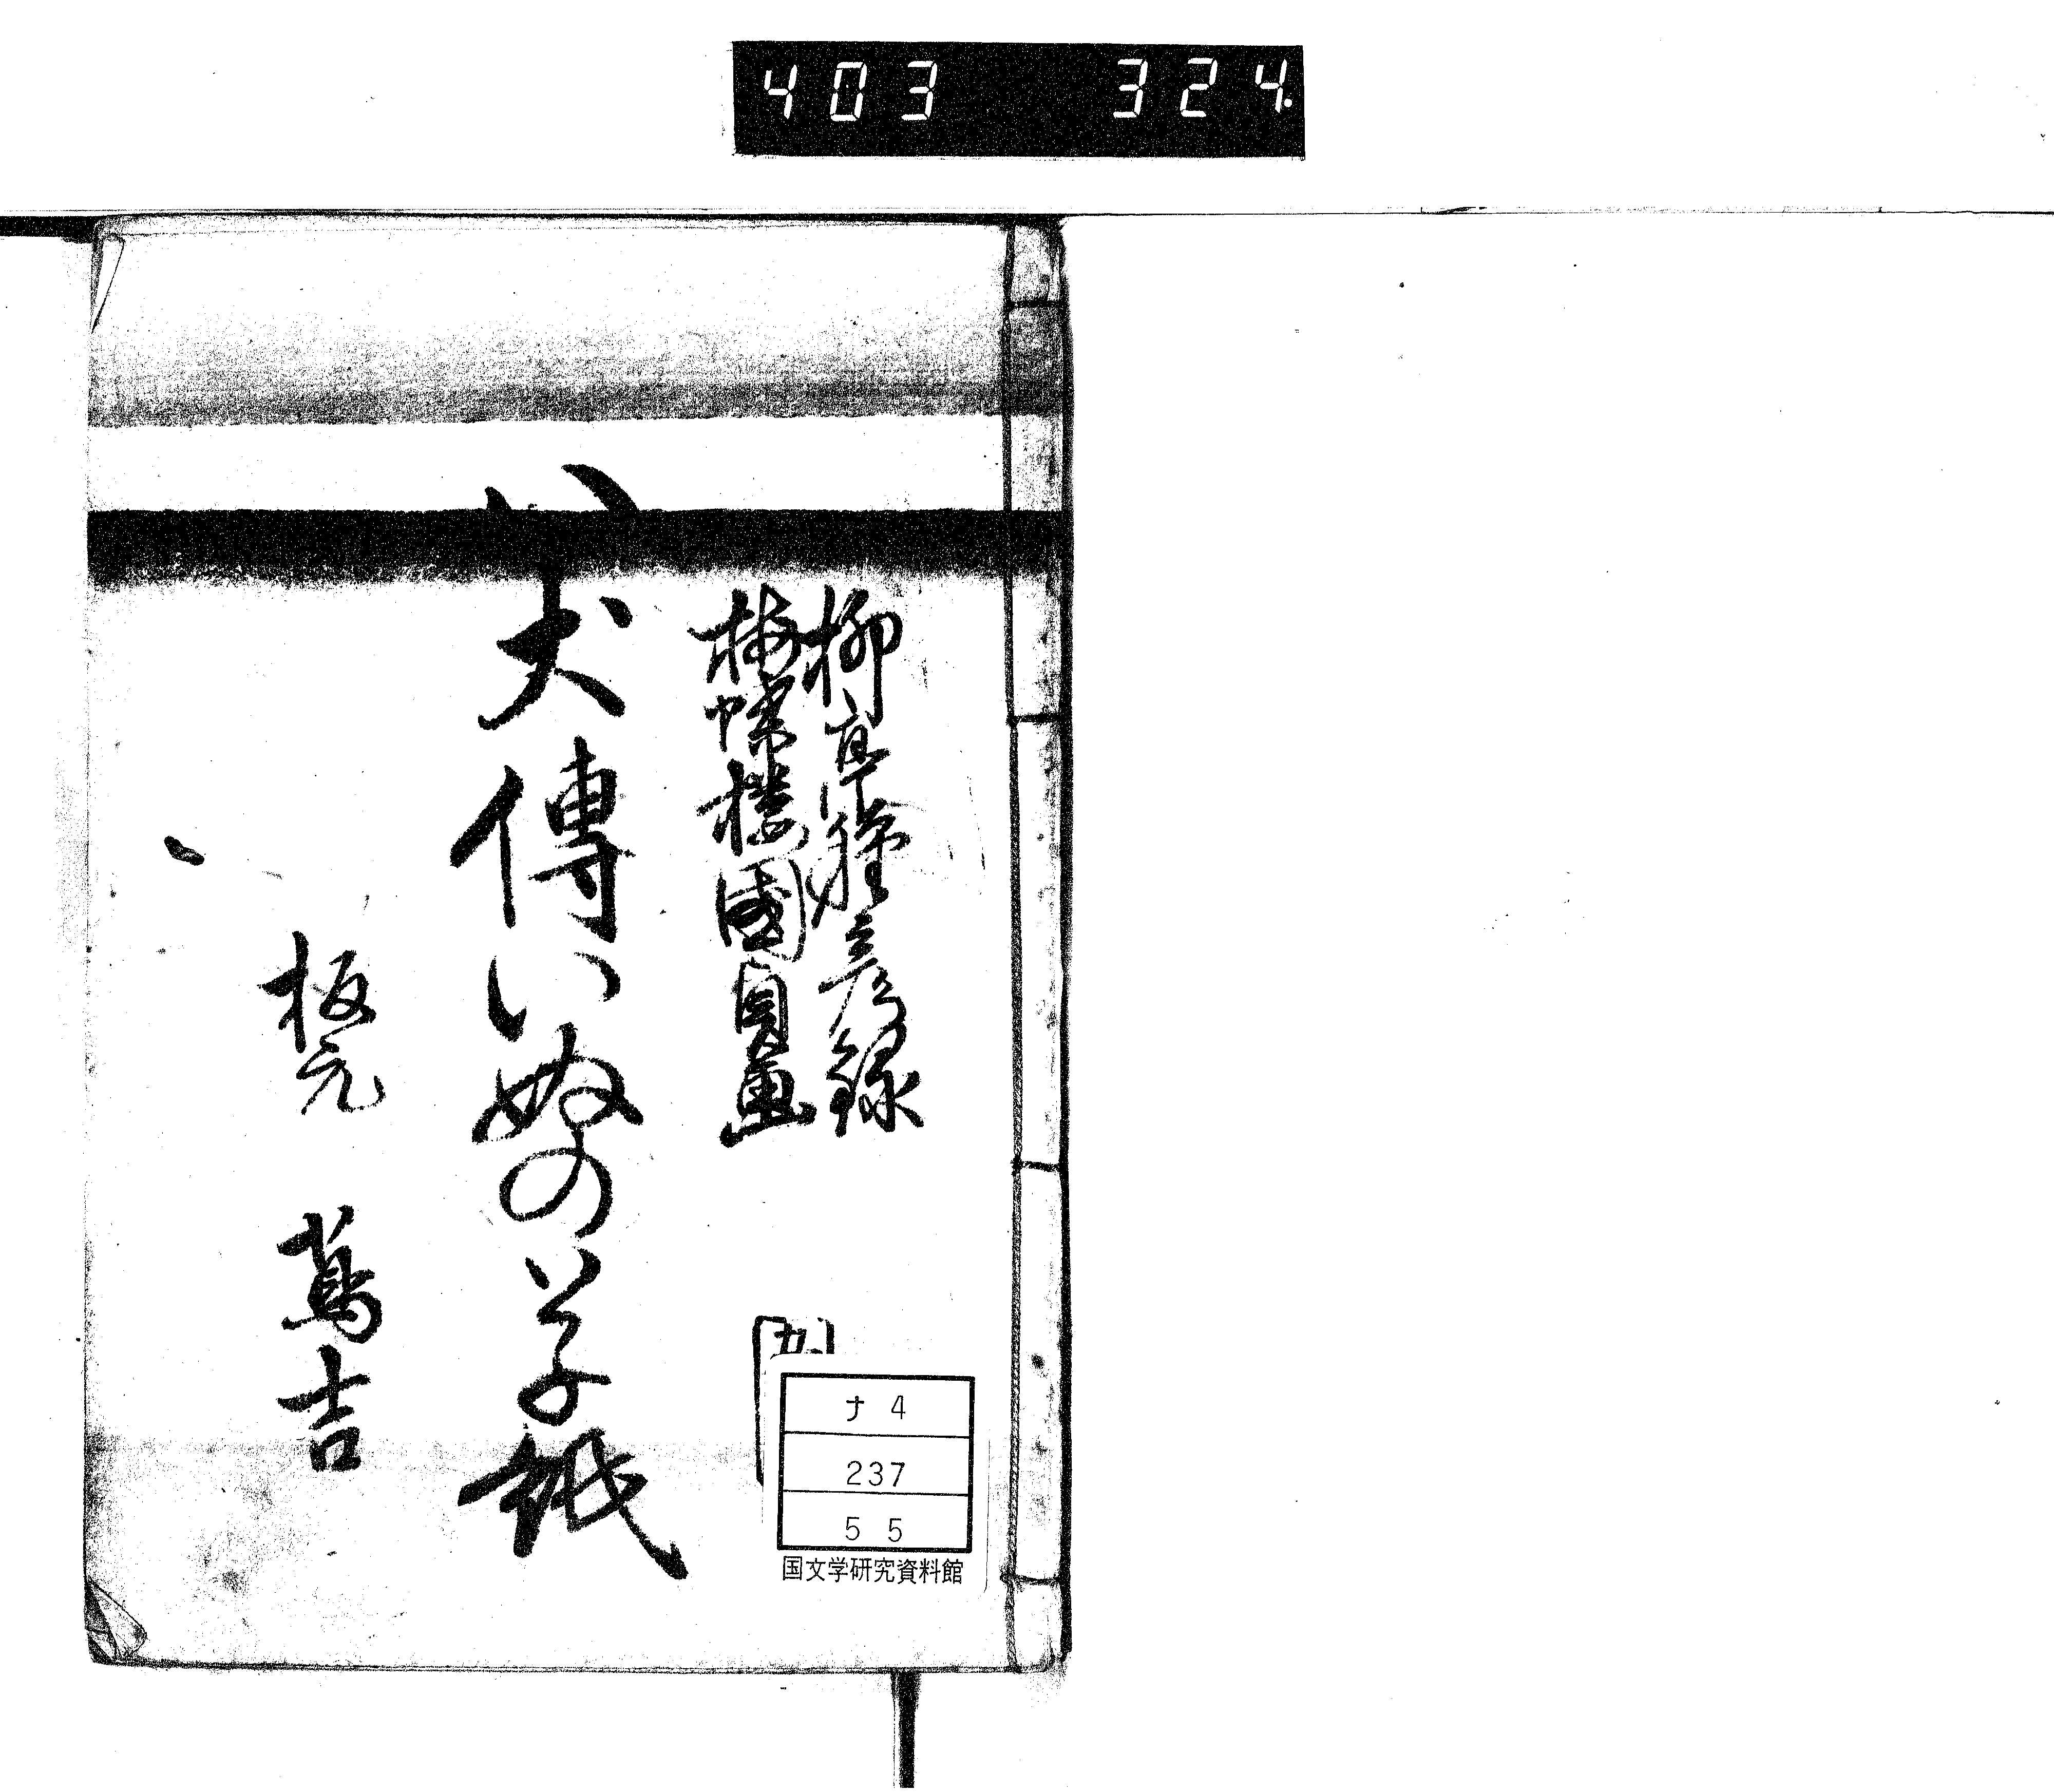 403 324
柳亭種彦録
梅蝶楼國貞画
八犬傳いぬの草紙
板元 蔦吉
ナ 4
237
5 5
国文学研究資料館